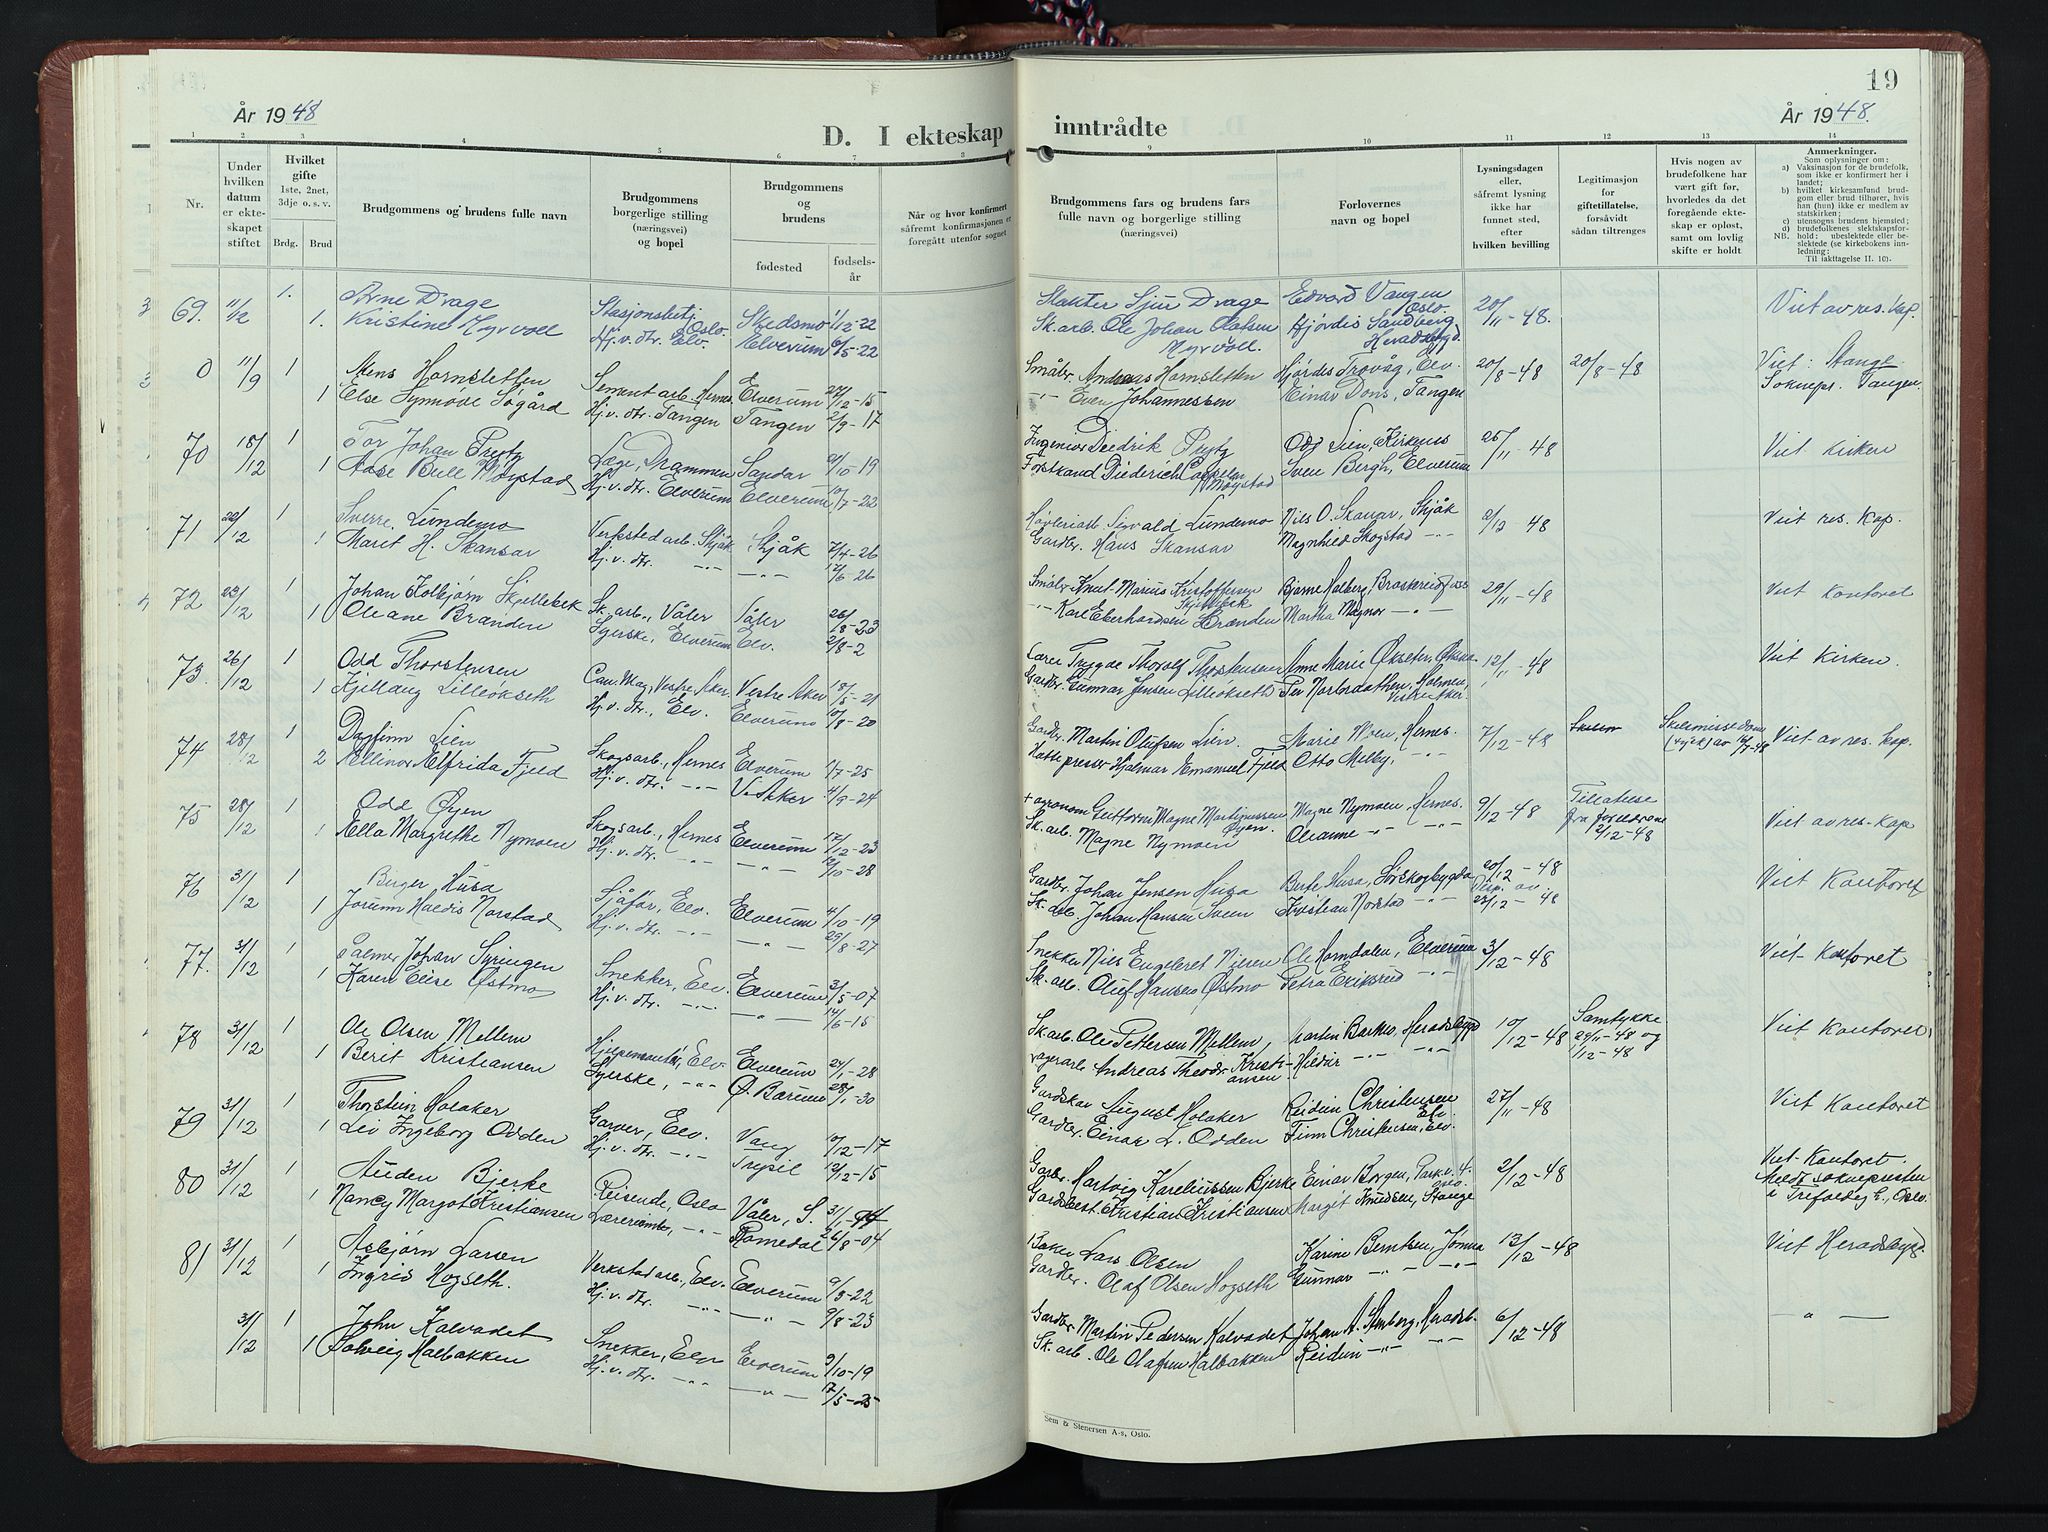 År 1948
D. I ekteskap inntrådte
19
År 1948.
1 2 3 4 5 6 7 8 9 10 11 12 13 14
Nr.
Under hvilken datum er ekteskapet stiftet
Hvilket gifte
1ste, 2net, 3dje o. s. v.
Brdg. Brud
Brudgommens og brudens fulle navn
Brudgommens borgerlige stilling (næringsvei) og bopel
Brudgommens og brudens
fødested
fødsels-år
Når og hvor konfirmert såfremt konfirmasjonen er foregått utenfor sognet
Brudgommens fars og brudens fars fulle navn og borgerlige stilling (næringsvei)
Forlovernes navn og bopel
Lysningsdagen eller, såfremt lysning ikke har funnet sted, efter hvilken bevilling
Legitimasjon for giftetillatelse, forsåvidt sådan tiltrenges
Hvis nogen av brudefolkene har vært gift før, hvorledes da det foregående ekteskap er opløst, samt om lovlig skifte er holdt
Anmerkninger.
Som oplysninger om:
a) Vaksinasjon for de brudefolk, som ikke er konfirmert her i landet;
b) hvilket kirkesamfund brudgom eller brud tilhører, hvis han (hun) ikke er medlem av statskirken;
c) utensogns brudens hjemsted;
d) brudefolkenes slektskapsforhold: ubeslektede eller beslektede (se kirkebokens innledning;
NB.
Til iakttagelse II. 10).
69. 11/12 1. Arne Drage Stasjonsbetj. Oslo. Skedsmo 1/12-22 Sjur Drage Edvard Vangen Oslo. 20/11-48. Viet av res. kap.
1. Kristine Myrvoll Hj.v. dtr. Elv. Elverum 6/5-22 Sk.arb. Ole Johan Olafsen Myrvoll. Hjördis Sandberg Heradsbygd.
0 11/9 1 Hornsletten Sement arb. Hernes Elverum 22/12-15 Småbr. Andreas Hornsletten Hjördis Trovåg, Elv. 20/8-48 20/8-48 Viet: Stange
1 Else Synnöve Sögård Hj.v. dtr. Tangen Tangen 2/9-17 -"- Even Johannessen Einar Dons, Tangen Soknepr. Tangen.
70 18/12 1 Tor Johan Prytz Læge, Drammen Sandar 21/10-19 Ingeniør Diedrik Prytz Odd Lien, Kirkenes 25/11-48 Viet Kirken
1 Aase Bull Möystad Hj.v. dtr. Elverum Elverum 10/7-22 Forstkand Diederich Cappelen Möystad Sven Bergh, Elverum
71 22/12 1 Sverre Lundemo Verksted arb. Skjåk Skjåk 7/4-26 Lundemo Nils O. Skansar, Skjåk 2/12-48 Viet res. Kap.
1 Marit H. Skansar Hj.v. dtr. -"- -"- 12/6-26 Gardbr. Hans Skansar Magnhild Skogstad -"-
72 23/12 1 Johan Kolbjörn Skjellebek Sk.arb., Våler Våler 26/8-23 Småbr. Knut Marius Kristoffersen Skjellebek Bjarne Holberg, Braskereidfoss 29/11-48 Viet Kontoret
1 Oleane Brænden Syerske, Elverum Elv. 2/8-2 -"- Karl Eberhardsen Brænden Martha Magnor -"-
73. 26/12 1 Odd Thorstensen Can. Mag., Vestre Aker Vestre Aker 18/5-21 Lærer Trygve Thorolf Thorstensen Anne Marie Økseter, 12/11-48 Viet Kirken.
1 Kjellaug Lilleökseth Hj.v. dtr., Elv. Elverum 10/8-20 Gardbr. Gunnar Jensen Lilleökseth Holmen, Vestre Aker.
74 28/12 1 Dagfinn Lien Skogsarb., Hernes Elverum 1/7-25 Gardbr. Martin Olufsen Lien. Marie Moen, Hernes. 7/12-48 Skilsmissedom av 16/7-48 Viet av res. kap.
2 Ellinor Alfrida Fjeld Hj.v. dtr. -"- V. Aker 4/9-24 Hattepresser Hjalmar Emanuel Fjeld Otto Melby, -"-
75 28/12 1 Odd Øyen Skogsarb., Hernes Elverum 17/12-23 + agronom Guttorm Magne Martinussen Øyen. Magne Nymoen, Hernes. 9/12-48 Tillatelse fra foreldrene 2/12-48 Viet av res-kap
1 Ella Margrethe Nymoen Hj.v. dtr. -"- -"- 12/10-28 Sk. arb. Magne Nymoen Oleanne -"- -"-
76 31/12 1 Birger Husa Sjåfør, Elv. Elverum 4/10-19 Gardbr. Johan Jensen Husa Berte Husa, Sörskogbygda 20/12-48 Disp. av 22/12-48 Viet Kontoret
1 Jorunn Haldis Norstad Hj.v. dtr. -"- -"- 29/8-27 Sk. arb. Johan Hansen Sveen Kristian Norstad -"-
77. 31/12 1 Palmer Johan Syringen Snekker, Elv. Elverum 3/5-07 Snekker Nils Engebret Nilsen Ole Horndalen, Elverum 3/12-48 Viet Kontoret
1 Karen Elise Østmo Hj.v. dtr. -"- -"- 14/6-15 Sk. arb. Oluf Hansen Østmo Petra Eriksrud -"-
78 31/12 1 Ole Olsen Mellem Elv. Elverum 24/1-28 Sk.arb. Ole Pettersen Mellem, Martin Bakke, Heradsbygd 10/12-48 Samtykke 29/11-48 og 1/12-48 Viet Kontoret
1 Berit Kristiansen Syerske, -"- Ø. Bærum 28/1-30 Andreas Theodr Kristiansen Hildur -"- -"-
79 31/12 1 Thorstein Holaker Garver, Elv. Vang 10/12-17 August Holaker Reidun Christensen Elv. 27/11-48 Viet Kontoret
1 Liv Ingeborg Odden Hj.v. dtr. -"- Trysil 12/12-15 Gardbr. Einar L. Odden Finn Christensen, Elv.
80 31/12 1 Auden Bjerke Reisende, Oslo Våler, S. 31/1- Gardbr. Hartvig Kareliussen Bjerke Einar Borgen, Parkv. 4. 2/12-48 Viet Kontoret.
1 Nancy Margot Kristiansen -"- Romedal 26/8-04 Kristian Kristiansen Margit Knudsen, Stange Meldt soknepresten i Trefoldigh., Oslo.
81 31/12 1 Asbjörn Larsen Verkstad arb., Elv. Elverum 9/3-22 Baker Lars Olsen Karine Berntsen, Jömna 13/12-48 Viet Heradsbygd
1 Ingrid Hogseth. Hj.v. dtr. -"- -"- 9/8-23 Gardbr. Olaf Olsen Hogseth Gunnar -"- -"-
31/12 1 John Kalvadet Snekker, Elv Elverum 9/10-19 Gardbr. Martin Pedersen Kalvadet Johan A. Stenberg, Heradsb. 6/12-48 -"-
1 Solveig Halbakken Hj.v. dtr. -"- -"- 17/5-25 Sk. arb. Ole Olafsen Halbakken Reidun -"- -"-
Sem & Stenersen A-s, Oslo.